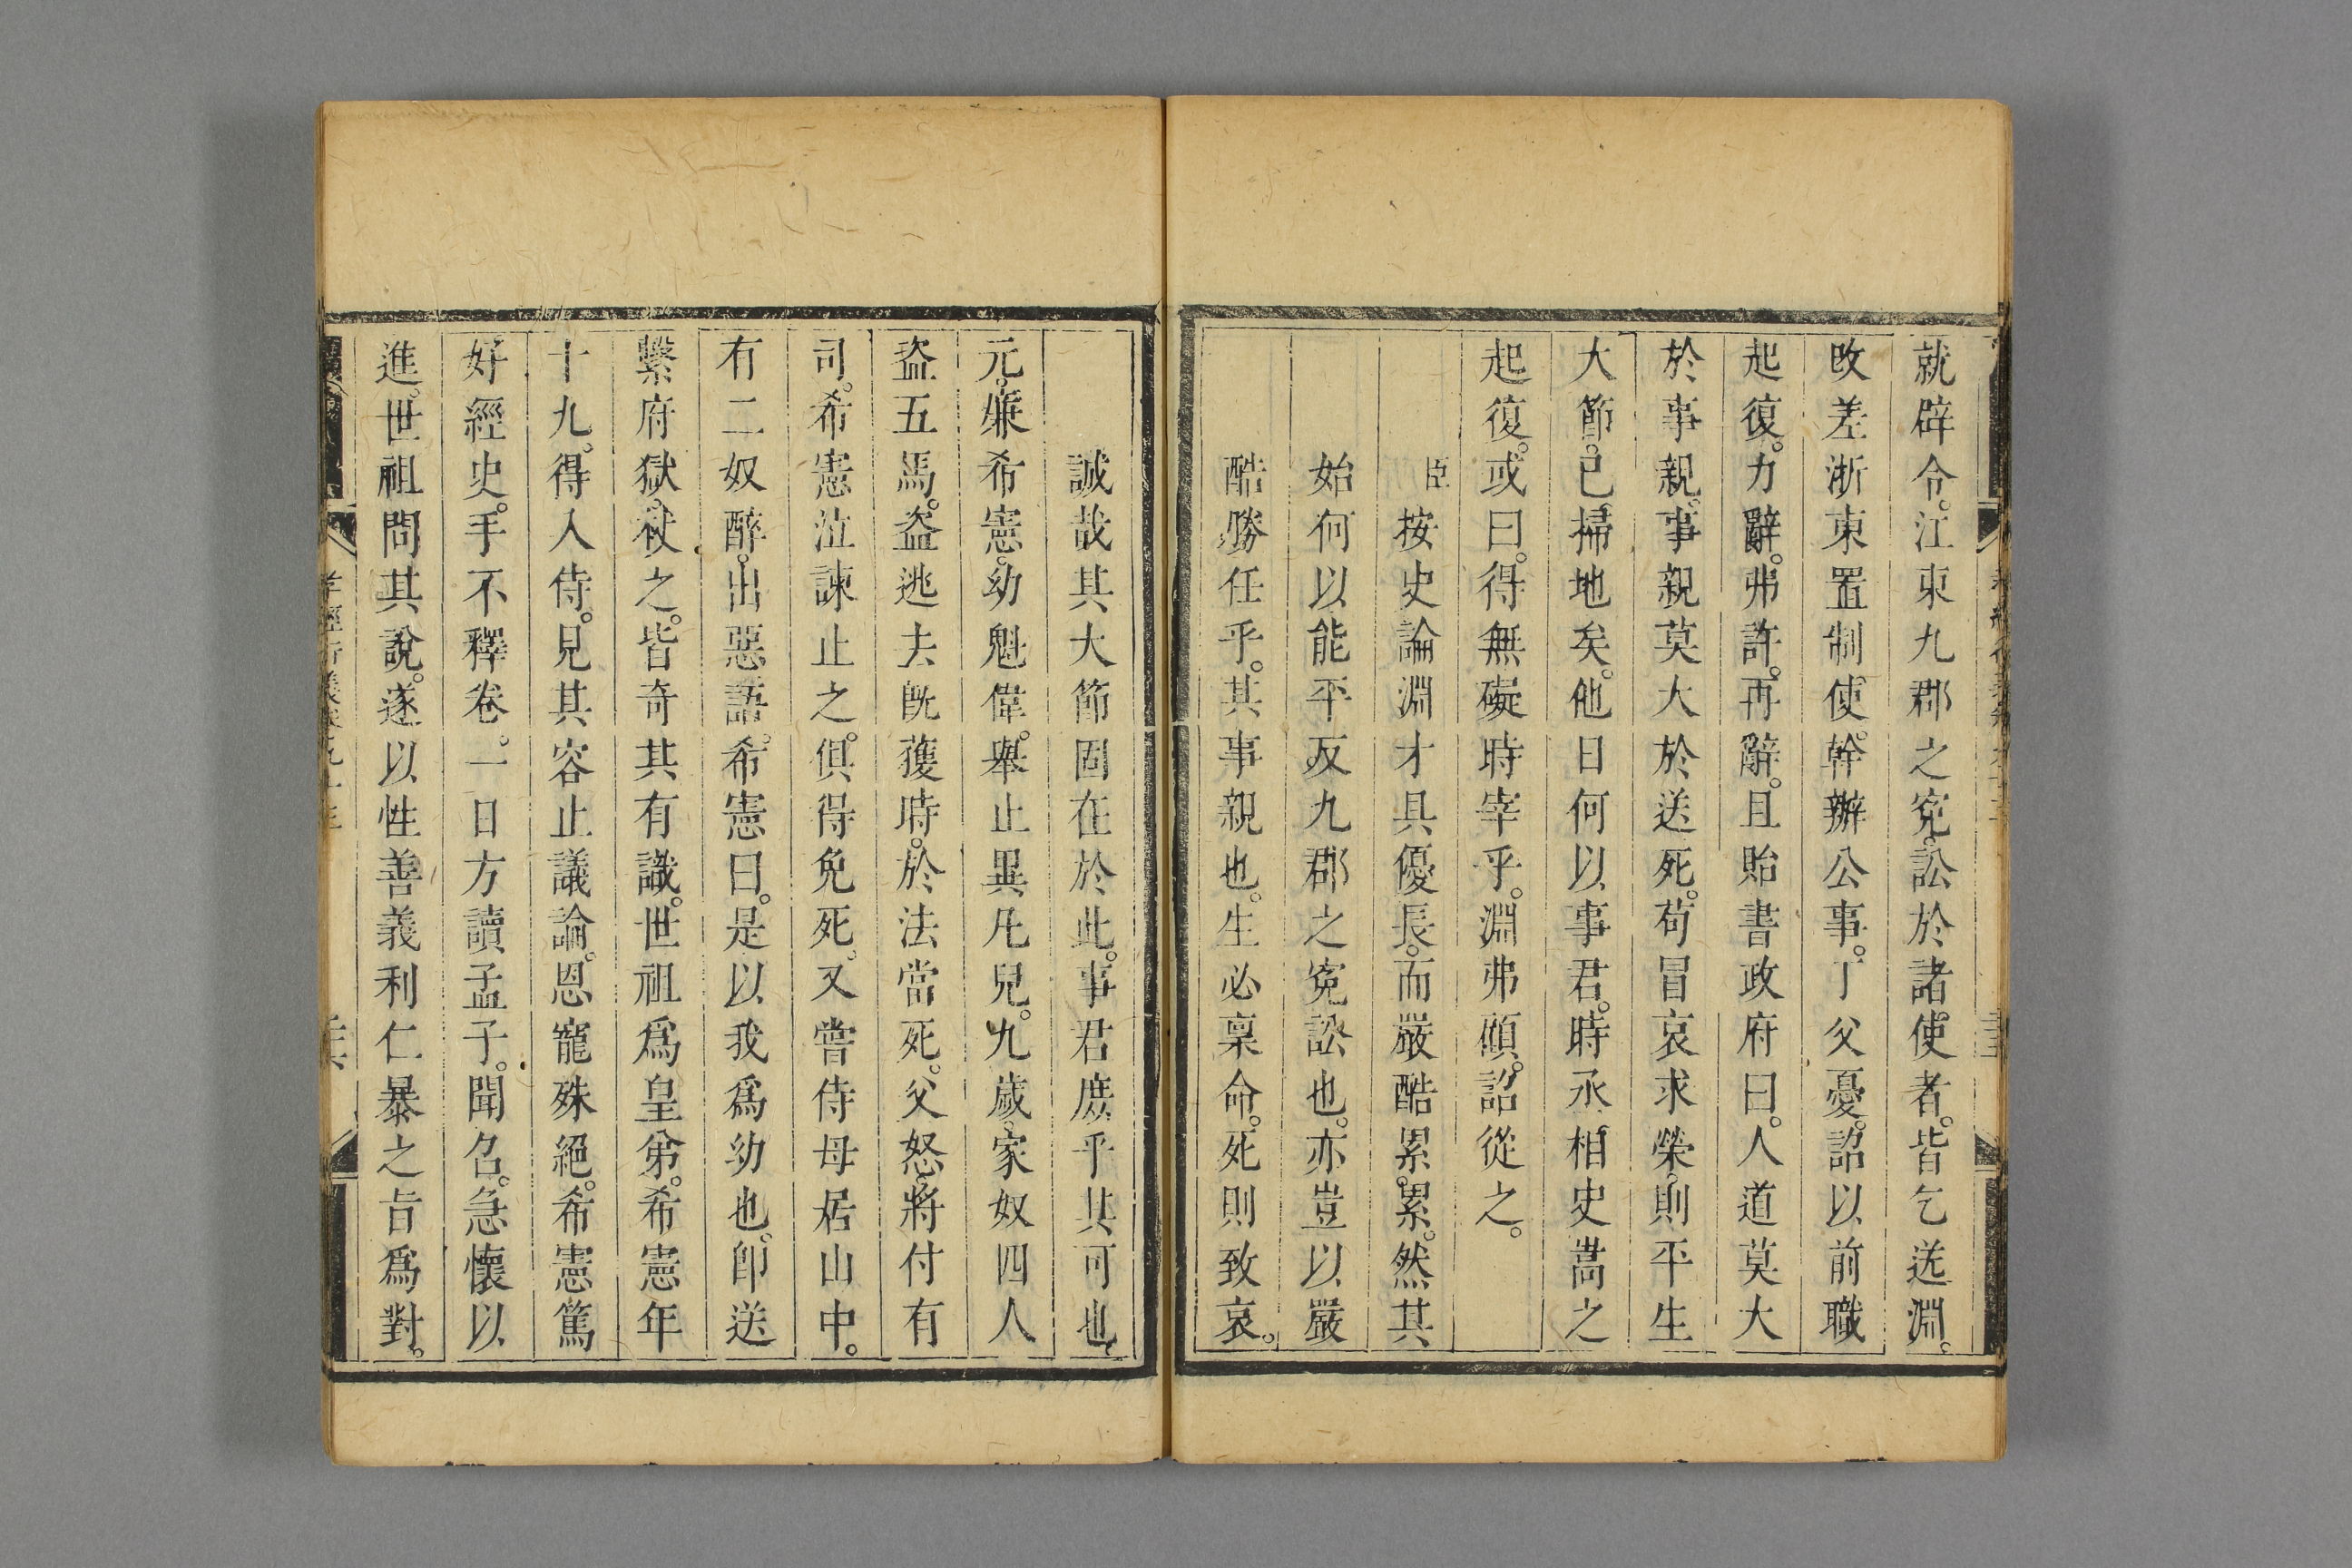 就辟令。江東九郡之寃。訟於諸使者。皆乞送淵。
改差浙東置制使。幹辦公事。丁父憂。詔以前職
起復。力辭。弗許。再辭。且貽書政府曰。人道莫大
於事親。事親莫大於送死。苟冒哀求榮。則平生
大節。已掃地矣。他日何以事君。時丞相史嵩之
起復。或曰。得無礙時宰乎。淵弗顧。詔從之。
臣按史論淵才具優長。而嚴酷累累。然其
始何以能平反九郡之寃訟也。亦豈以嚴
酷勝任乎。其事親也。生必稟命。死則致哀。
誠哉其大節固在於此。事君庶乎其可也。
元。廉希憲。幼魁偉。舉止異凡兒。九歲。家奴四人
盜五馬。盜逃去旣獲時。於法當死。父怒。將付有
司。希憲泣諫止之。俱得免死。又嘗侍母居山中。
有二奴醉。出惡語。希憲曰。是以我爲幼也。卽送
繫府獄。杖之。皆奇其有識。世祖爲皇弟。希憲年
十九。得入侍。見其容止議論。恩寵殊絕。希憲篤
好經史。手不釋卷。一日方讀孟子。聞召。急懷以
進。世祖問其說。遂以性善義利仁暴之旨爲對。